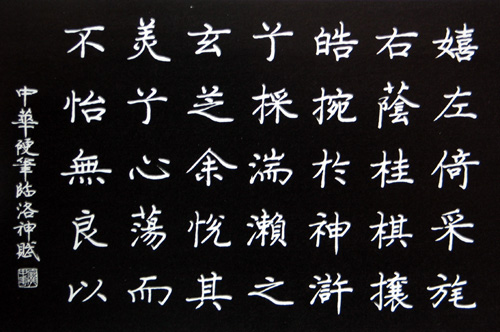 嬉左倚采旄
右蔭桂棋攘
皓捥於神滸
兮採湍瀨之
玄芝余悅其
羙兮心蕩而
不怡無良以
中華硬筆临洛神賦